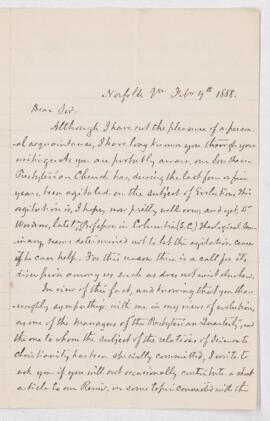 Norfolk Va. Feb. 9th 1888.
Dear Sir.
Although I have not the pleasure of a personal
acquaintance, I have long known you through your
writings. As you are probably aware, our Southern
Presbyterian Church has, during the last four or five
years been agitated on the subject of Evolution. This
agitation is, I hope, now pretty well over, and yet, Dr
Woodrow, late Professor in Columbia (S.C.) Theological Sem-
inary, seems determined not to let the agitation cease
if he can help. For this reason there is a call for its
discussion among us such as does not exist elsewhere.
In view of this fact, and knowing that you tho-
roughly sympathize with me in my view of evolution,
as one of the Managers of the "Presbyterian Quarterly," and
the one to whom the subject of the relations of Science to
Christianity has been specially committed, I write to
ask you if you will not occasionally contribute a short
article to our Review, on some topic connected with the